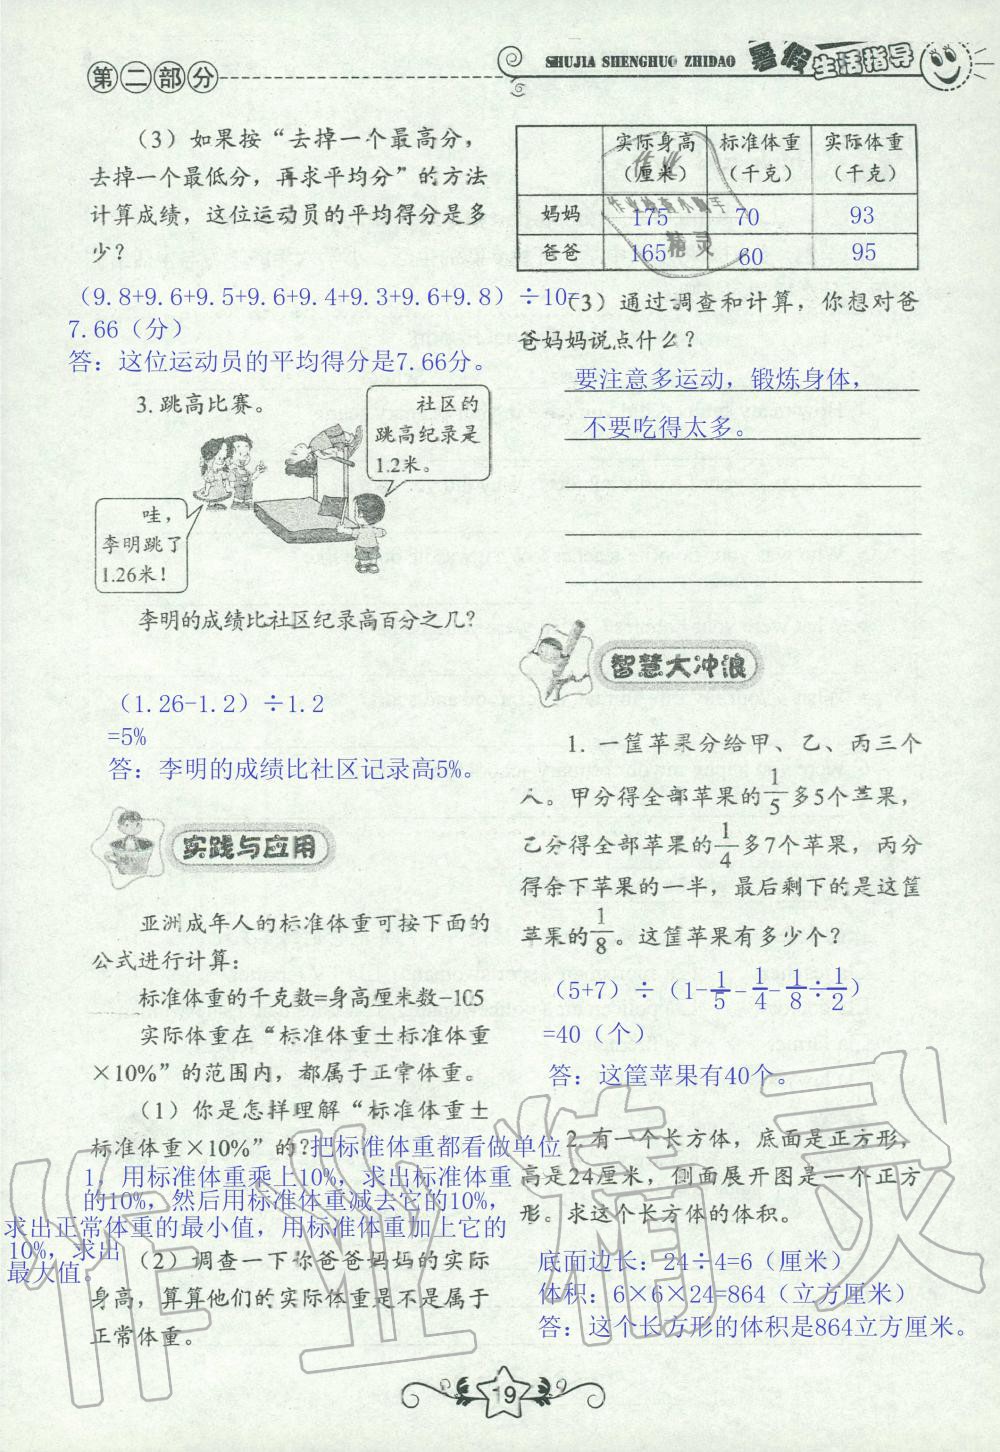 第二部分
SHUJIA SHENGHUO ZHIDAO 暑假生活指导
(3)如果按“去掉一个最高分，
去掉一个最低分，再求平均分”的方法
计算成绩，这位运动员的平均得分是多
少？
(9.8+9.6+9.5+9.6+9.4+9.3+9.6+9.8)÷10=
7.66(分)
答：这位运动员的平均得分是7.66分。
3. 跳高比赛。
社区的
跳高纪录是
1.2米。
哇，
李明跳了
1.26米！
李明的成绩比社区纪录高百分之几？
(1.26-1.2)÷1.2
=5%
答：李明的成绩比社区记录高5%。
实践与应用
亚洲成年人的标准体重可按下面的
公式进行计算：
标准体重的千克数=身高厘米数-105
实际体重在“标准体重±标准体重
×10%”的范围内，都属于正常体重。
(1)你是怎样理解“标准体重±
标准体重×10%”的？把标准体重都看做单位
1，用标准体重乘上10%，求出标准体重
的10%，然后用标准体重减去它的10%，
求出正常体重的最小值，用标准体重加上它的
10%，求出
最大值。
(2)调查一下你爸爸妈妈的实际
身高，算算他们的实际体重是不是属于
正常体重。
实际身高 标准体重 实际体重
(厘米) (千克) (千克)
妈妈 175 70 93
爸爸 165 60 95
(3)通过调查和计算，你想对爸
爸妈妈说点什么？
要注意多运动，锻炼身体，
不要吃得太多。
智慧大冲浪
1. 一筐苹果分给甲、乙、丙三个
人。甲分得全部苹果的1/5多5个苹果，
乙分得全部苹果的1/4多7个苹果，丙分
得余下苹果的一半，最后剩下的是这筐
苹果的1/8。这筐苹果有多少个？
(5+7)÷(1-1/5-1/4-1/8÷1/2)
=40(个)
答：这筐苹果有40个。
2. 有一个长方体，底面是正方形，
高是24厘米，侧面展开图是一个正方
形。求这个长方体的体积。
底面边长：24÷4=6(厘米)
体积：6×6×24=864(立方厘米)
答：这个长方形的体积是864立方厘米。
19
作业精灵